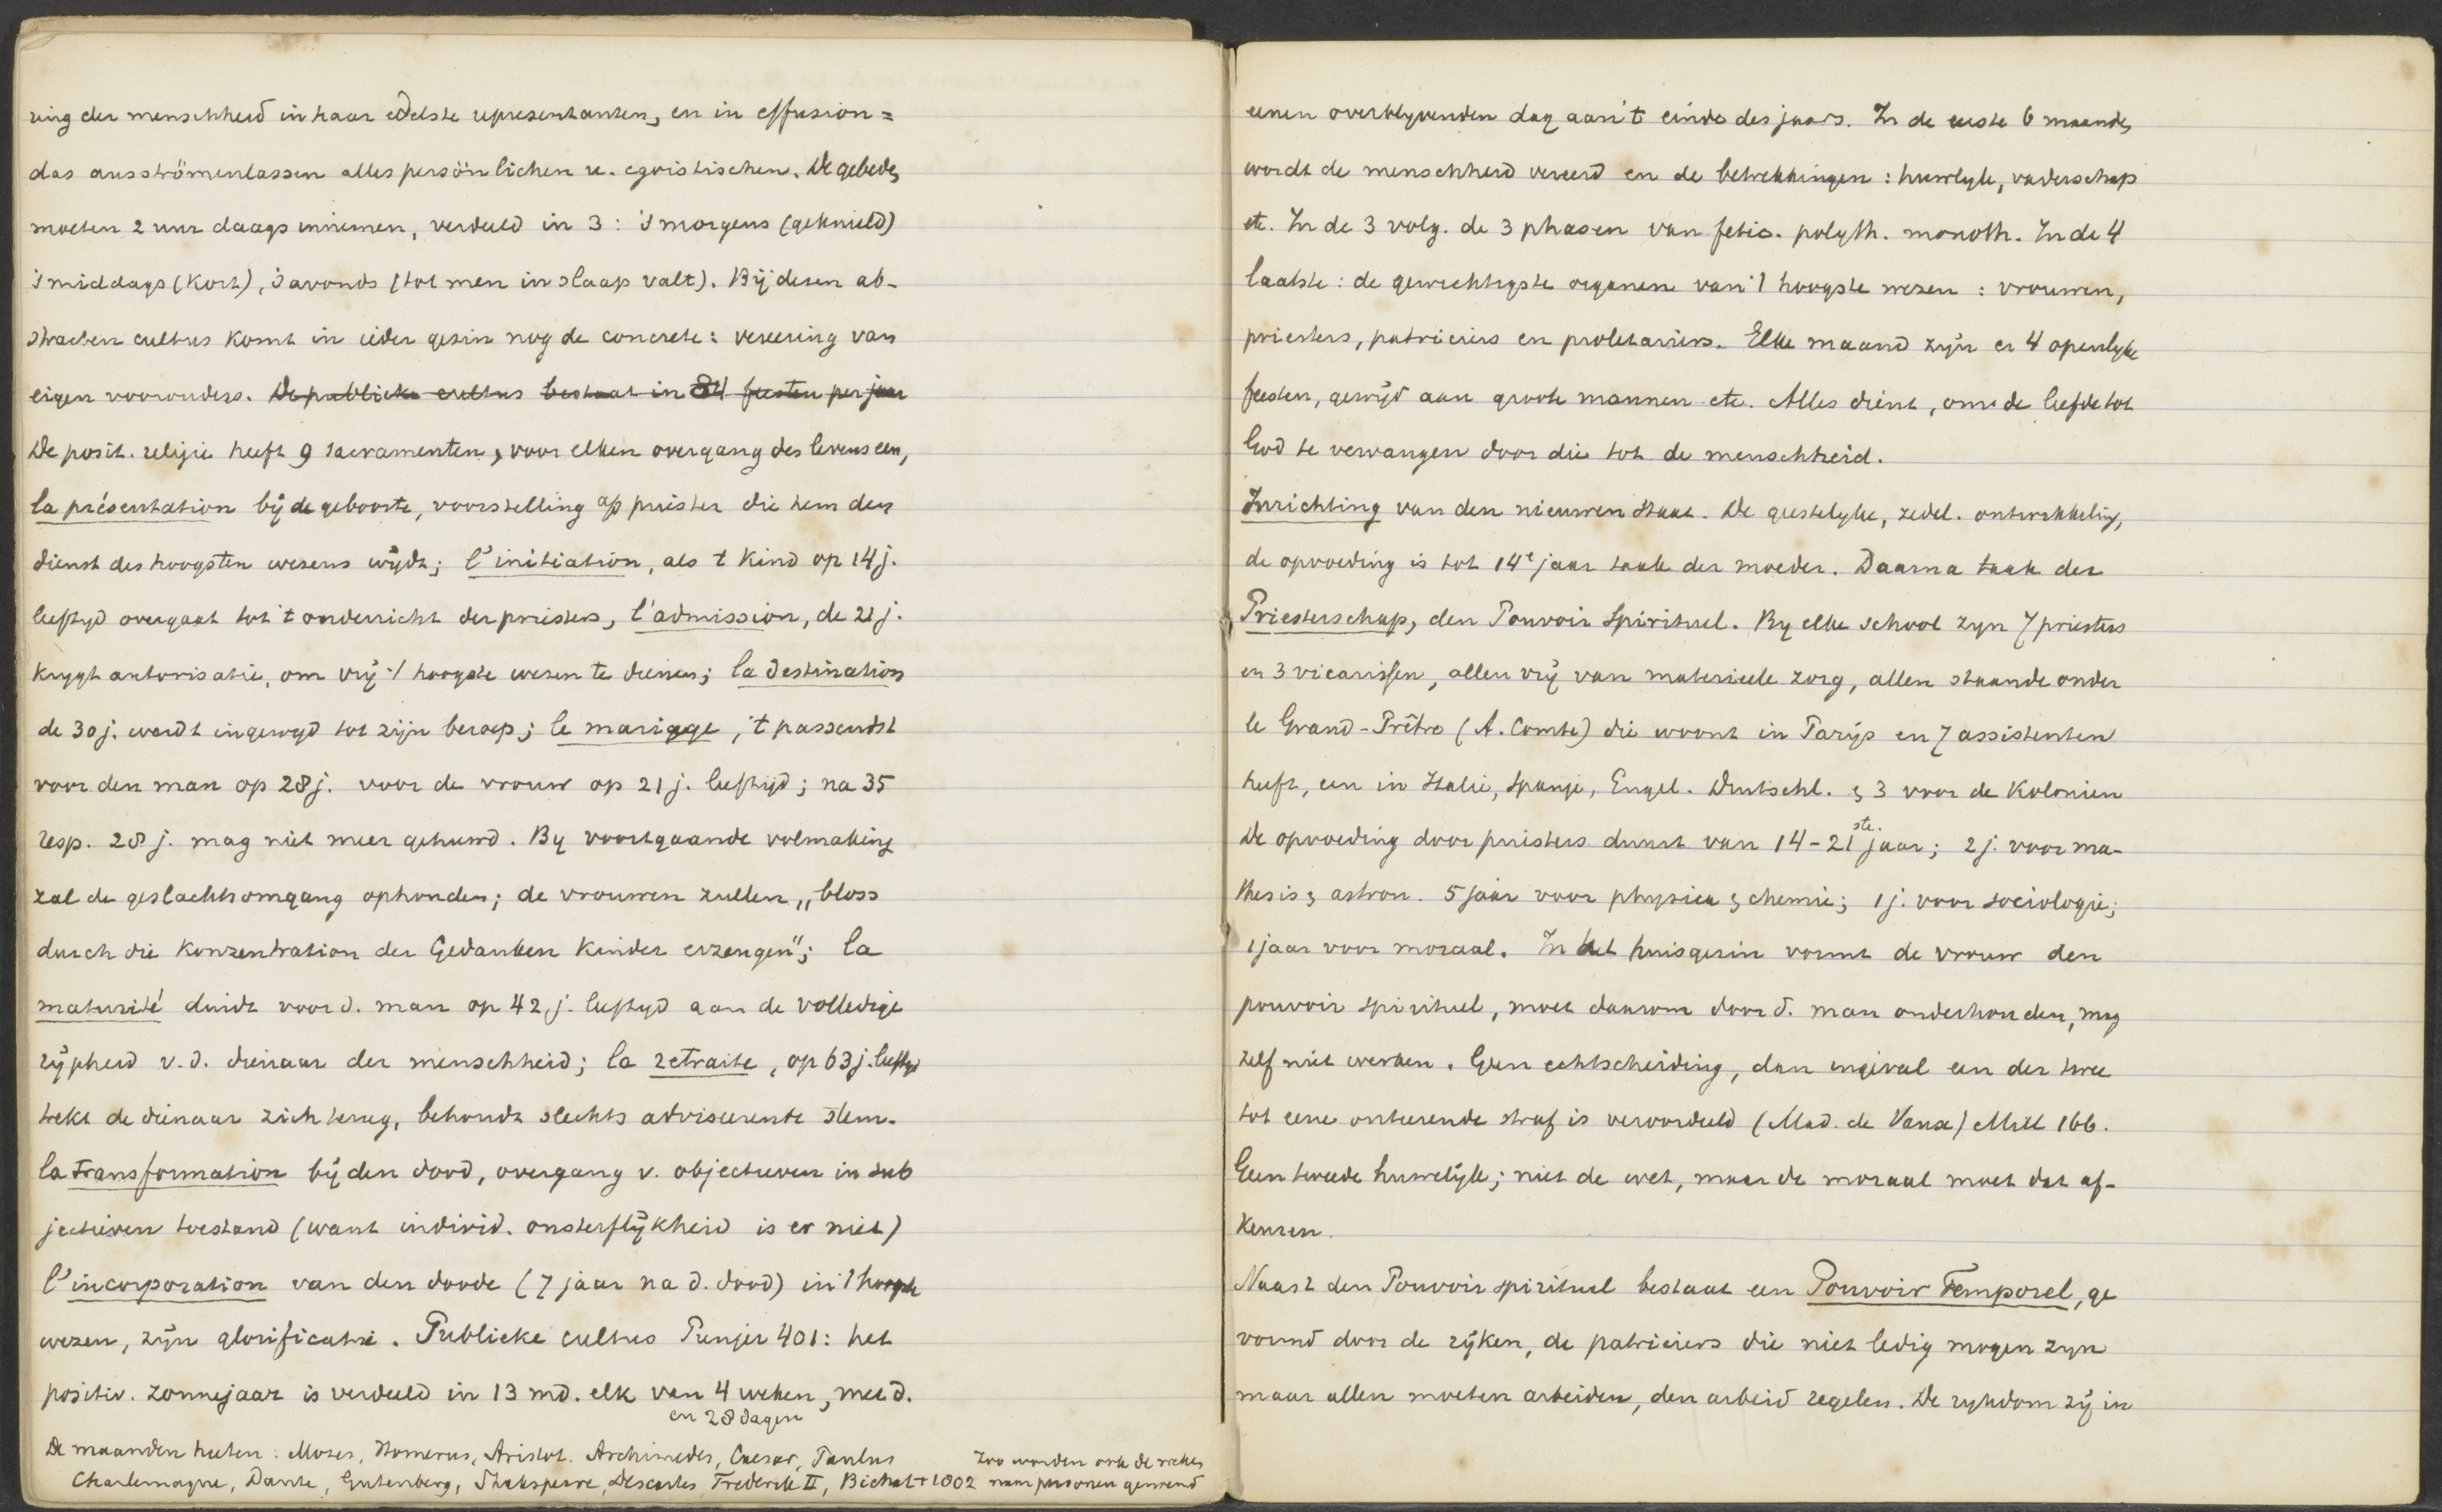 ring der menschheid in haar edelste representanten, en in effusion =
das ausströmenlassen alles persönlichen u. egoistischen. De gebeden
moeten 2 uur daags innemen, verdeeld in 3: 's morgens (geknield)
's middags (kort), 's avonds (tot men in slaap valt). Bij dezen ab-
stracten cultus komt in ieder gezin nog de concrete: vereering van
eigen voorouders. De publieke cultus bestaat in 84 feesten per jaar
De posit. religie heeft 9 sacramenten, voor elken overgang des levens een,
la présentation bij de geboorte, voorstelling a/d priester die hem den
dienst des hoogsten wezens wijdt; l'initiation, als 't kind op 14 j.
leeftyd overgaat tot 't onderricht der priesters, l'admission, de 21 j.
krygt autorisatie, om vrij 't hoogste wezen te dienen; la destination
de 30 j. wordt ingewyd tot zijn beroep; le mariage, 't passendst
voor den man op 28 j. voor de vrouw op 21 j. leeftijd; na 35
resp. 28 j. mag niet meer gehuwd. By voortgaande volmaking
zal de geslachtsomgang ophouden; de vrouwen zullen „bloss
durch die Konzentration der Gedanken Kinder erzeugen"; la
maturité duidt voor d. man op 42 j. leeftyd aan de volledige
rijpheid v.d. dienaar der menschheid; la retraite, op 63 j. leeftyd
trekt de dienaar zich terug, behoudt slechts adviseerende stem.
la transformation bij den dood, overgang v. objectieven in sub
jectieven toestand (want individ. onsterflijkheid is er niet)
l'incorporation van den doode (7 jaar na d. dood) in 't hoogste
wezen, zijn glorificatie. Publieke cultus Punjer 401: het
positiv. zonnejaar is verdeeld in 13 md. elk van 4 weken, met d.
en 28 dagen
De maanden heeten: Mozes, Homerus, Aristot. Archimedes, Caesar, Paulus
Charlemagne, Dante, Gutenberg, Shakspeare, Descartes, Frederik II, Bichat † 1802
Zoo worden ook de weken
naar personen genoemd
eenen overblyvenden dag aan 't einde des jaars. In de eerste 6 maanden
wordt de menschheid vereerd en de betrekkingen: huwlyk, vaderschap
etc. In de 3 volg. de 3 phasen van fetis. polyth. monoth. In de 4
laatste: de gewichtigste organen van 't hoogste wezen: vrouwen,
priesters, patriciers en proletariers. Elke maand zijn er 4 openlyke
feesten, gewijd aan groote mannen etc. Alles dient, om de liefde tot
God te vervangen door die tot de menschheid.
Inrichting van den nieuwen Staat. De geestelyke, zedel. ontwikkeling,
de opvoeding is tot 14e jaar taak der moeder. Daarna taak der
Priesterschap, den Pouvoir Spirituel. By elke school zyn 7 priesters
en 3 vicarissen, allen vrij van materieele zorg, allen staande onder
le Grand-Prêtre (A. Comte) die woont in Parijs en 7 assistenten
heeft, een in Italie, Spanje, Engel. Deutschl. & 3 voor de Kolonien
De opvoeding door priesters duurt van 14-21ste jaar; 2 j. voor ma-
thesis & astron. 5 jaar voor physica & chemie; 1 j. voor sociologie;
1 jaar voor moraal. In het huisgezin vormt de vrouw den
pouvoir spirituel, moet daarom door d. man onderhouden, mag
zelf niet werken. Geen echtscheiding, dan ingeval een der twee
tot eene onteerende straf is veroordeeld (Mad. de Vaux) Mill 166.
Geen tweede huwelijk; niet de wet, maar de moraal moet dat af-
keuren.
Naast den Pouvoir spirituel bestaat een Pouvoir Temporel, ge
vormd door de rijken, de patriciers die niet ledig mogen zyn
maar allen moeten arbeiden, den arbeid regelen. De rykdom zij in